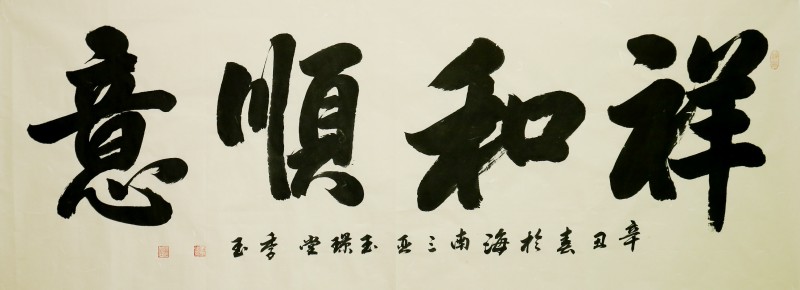 祥和順意
辛丑春於海南三亚玉璞堂季玉